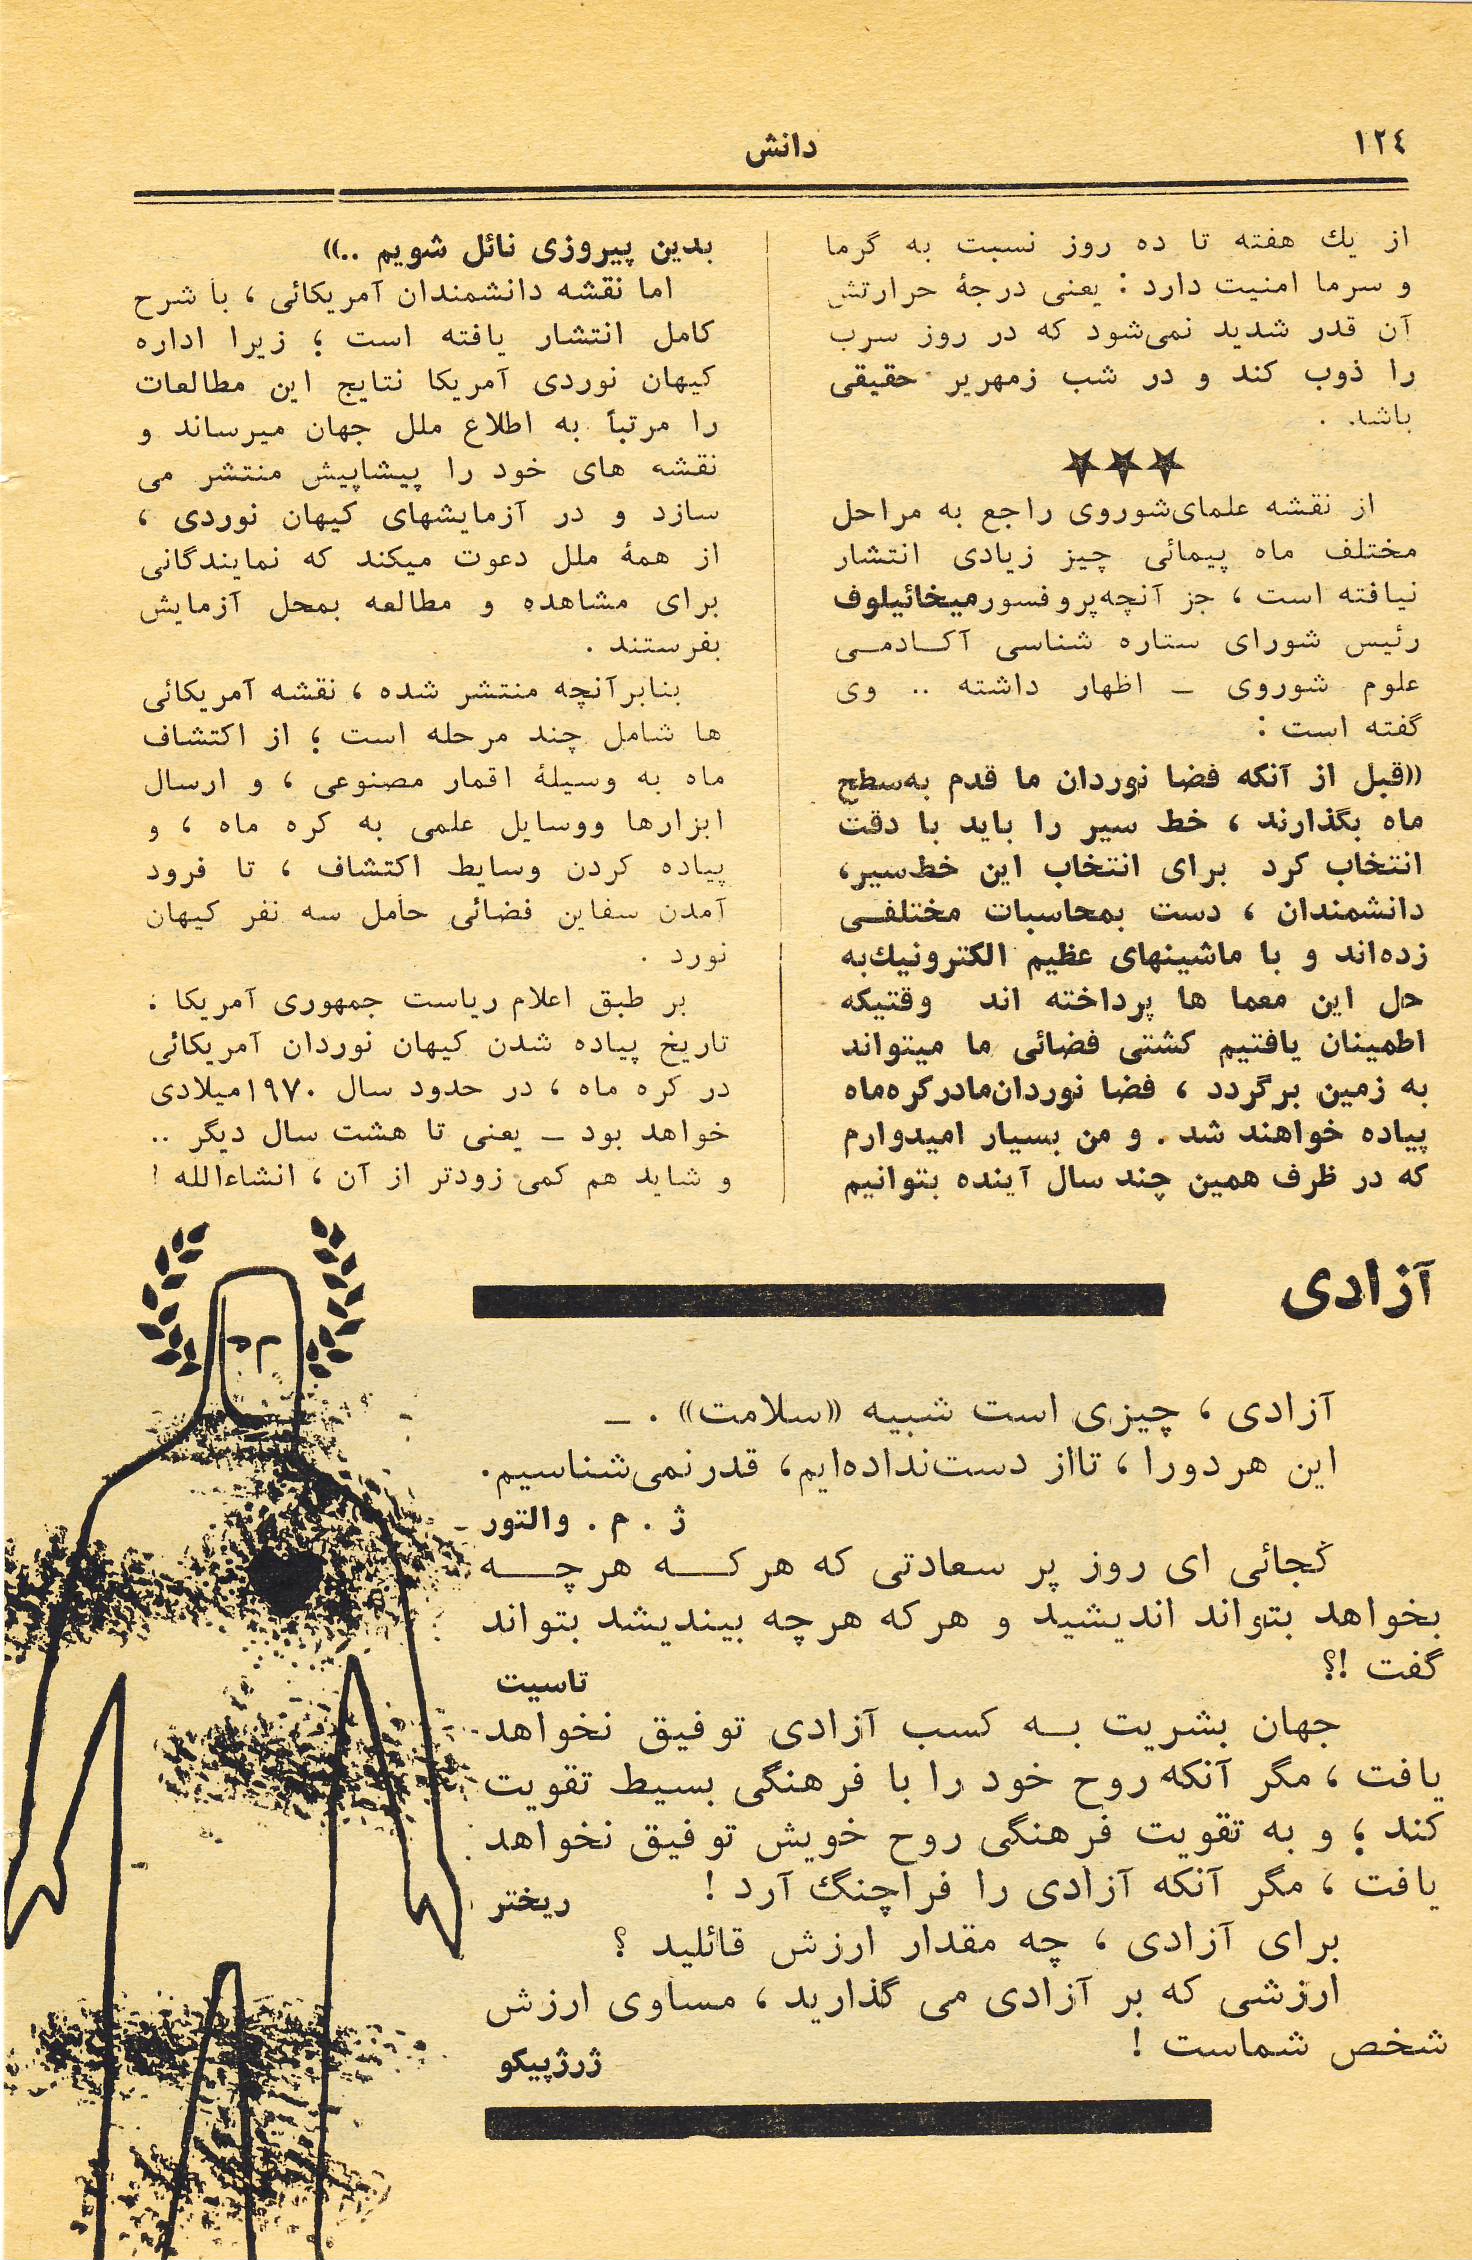 ١٢٤
دانش
از یك هفته تا ده روز نسبت به گرما
و سرما امنیت دارد : یعنی درجهٔ حرارتش
آن قدر شدید نمی‌شود که در روز سرب
را ذوب کند و در شب زمهریر حقیقی
باشد .
از نقشه علمای‌شوروی راجع به مراحل
مختلف ماه پیمائی چیز زیادی انتشار
نیافته است ، جز آنچه‌پروفسورمیخائیلوف
رئیس شورای ستاره شناسی آکـادمـی
علوم شوروی ـ اظهار داشته .. وی
گفته است :
«قبل از آنکه فضا نوردان ما قدم به‌سطح
ماه بگذارند ، خط سیر را باید با دقت
انتخاب کرد برای انتخاب این خط‌سیر،
دانشمندان ، دست بمحاسبات مختلفـی
زده‌اند و با ماشینهای عظیم الکترونیك‌به
حل این معما ها پرداخته اند وقتیکه
اطمینان یافتیم کشتی فضائی ما میتواند
به زمین برگردد ، فضا نوردان‌مادرکره‌ماه
پیاده خواهند شد . و من بسیار امیدوارم
که در ظرف همین چند سال آینده بتوانیم
بدین پیروزی نائل شویم ..»
اما نقشه دانشمندان آمریکائی ، با شرح
کامل انتشار یافته است ؛ زیرا اداره
کیهان نوردی آمریکا نتایج این مطالعات
را مرتباً به اطلاع ملل جهان میرساند و
نقشه های خود را پیشاپیش منتشر می
سازد و در آزمایشهای کیهان نوردی ،
از همهٔ ملل دعوت میکند که نمایندگانی
برای مشاهده و مطالعه بمحل آزمایش
بفرستند .
بنابرآنچه منتشر شده ، نقشه آمریکائی
ها شامل چند مرحله است ؛ از اکتشاف
ماه به وسیلهٔ اقمار مصنوعی ، و ارسال
ابزارها ووسایل علمی به کره ماه ، و
پیاده کردن وسایط اکتشاف ، تا فرود
آمدن سفاین فضائی حامل سه نفر کیهان
نورد .
بر طبق اعلام ریاست جمهوری آمریکا :
تاریخ پیاده شدن کیهان نوردان آمریکائی
در کره ماه ، در حدود سال ۱۹۷۰میلادی
خواهد بود ـ یعنی تا هشت سال دیگر ..
و شاید هم کمی زودتر از آن ، انشاءالله !
آزادی
آزادی ، چیزی است شبیه «سلامت» . ـ
این هردورا ، تااز دست‌نداده‌ایم، قدرنمی‌شناسیم.
ژ . م . والتور
کجائی ای روز پر سعادتی که هر کـــه هرچـــه
بخواهد بتواند اندیشید و هرکه هرچه بیندیشد بتواند
گفت !؟
تاسیت
جهان بشریت بــه کسب آزادی توفیق نخواهد
یافت ، مگر آنکه روح خود را با فرهنگی بسیط تقویت
کند ؛ و به تقویت فرهنگی روح خویش توفیق نخواهد
یافت ، مگر آنکه آزادی را فراچنگ آرد !
ریختر
برای آزادی ، چه مقدار ارزش قائلید ؟
ارزشی که بر آزادی می گذارید ، مساوی ارزش
شخص شماست !
ژرژپیکو